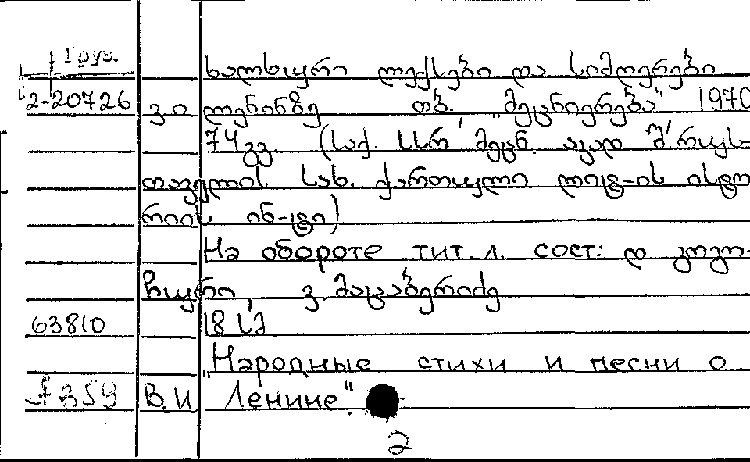 Груз.
ხალხური ლექსები და სიმღერები
2-20726 ვ.ი ლენინზე თბ. „მეცნიერება" 1970
74გვ. (საქ. სსრ მეცნ. აკად შ. რუს-
თაველის სახ. ქართული ლიტ-ის ისტო
რიის ინ-ტი)
На обороте тит. л. сост: დ გოგო-
ჭური, ვ. მაცაბერიძე
63810 18 სმ
"Народные стихи и песни о
В.И Ленине".
2